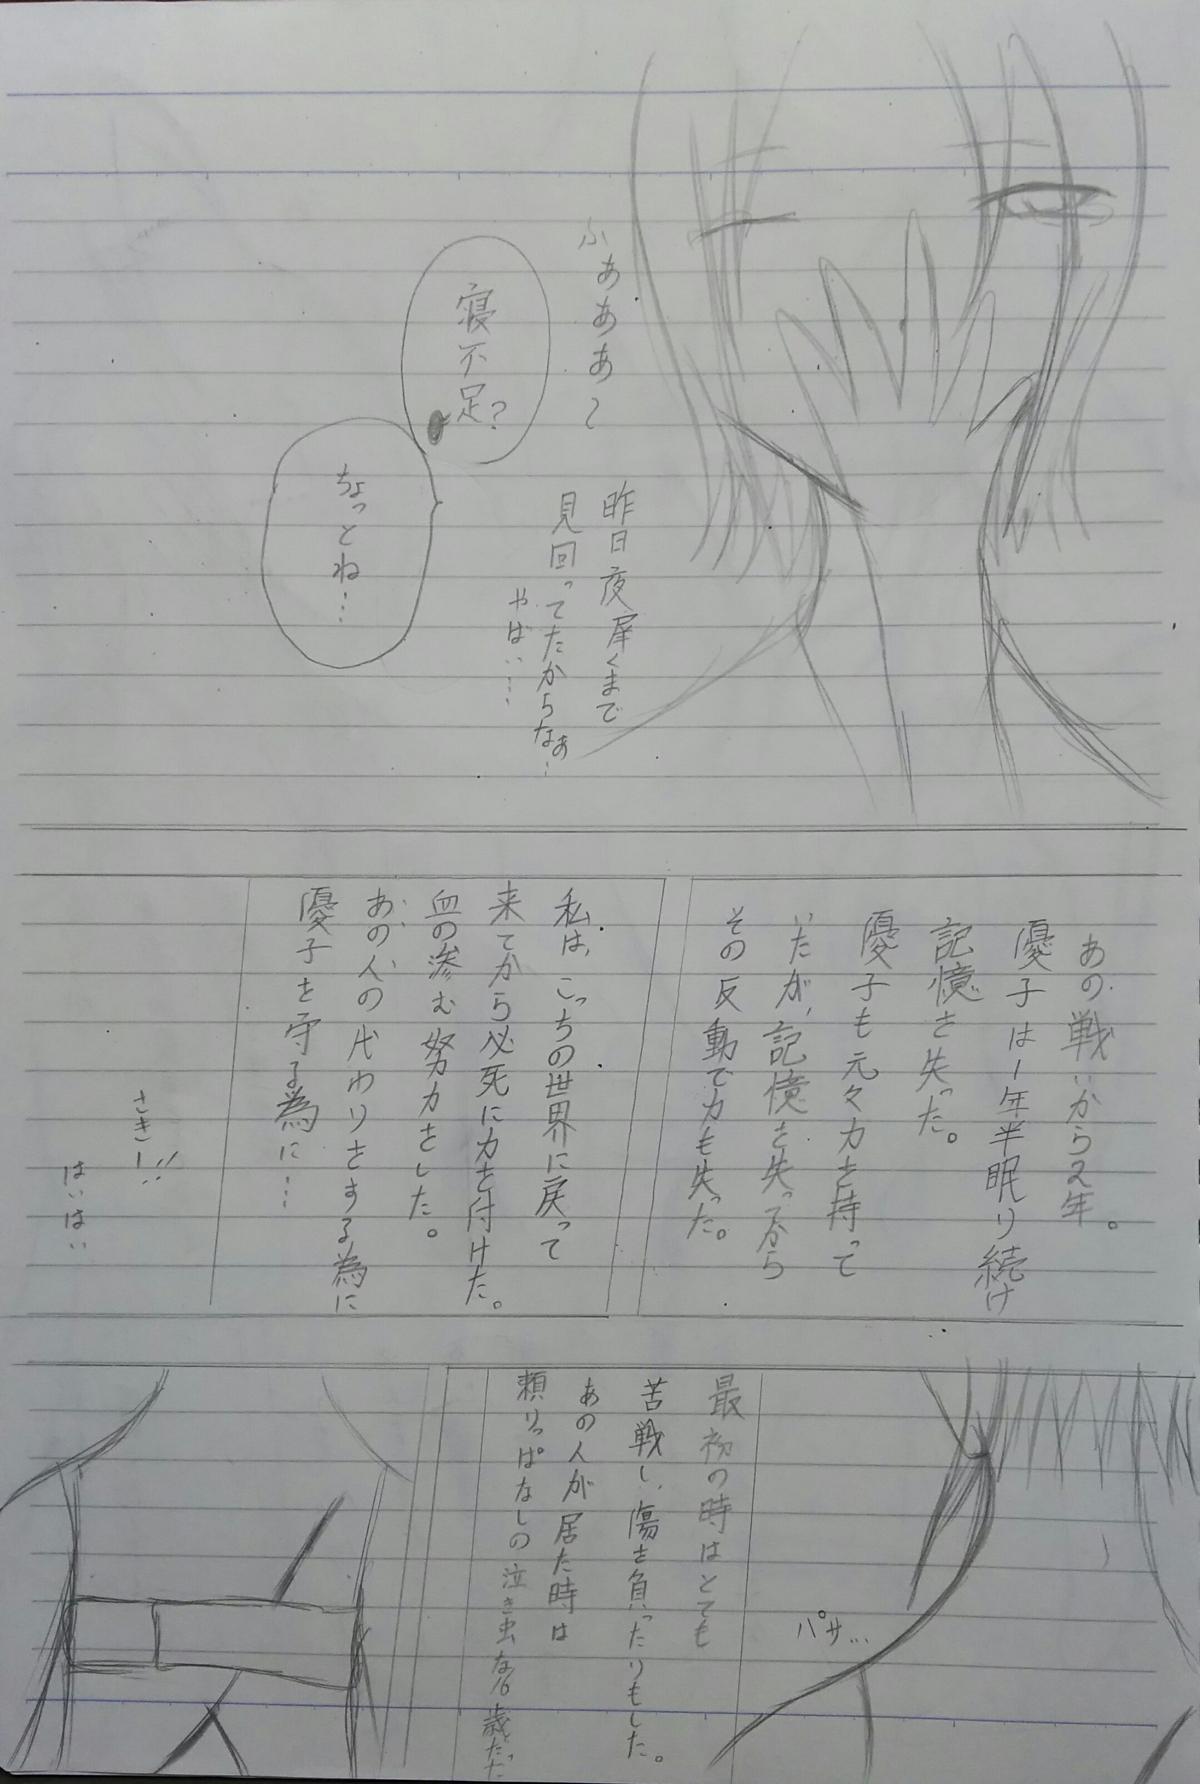 ふあああ～
昨日夜遅くまで
見回ってたからなぁ…
やば…
寝不足?
ちょっとね…
あの戦いから2年。
優子は1年半眠り続け
記憶を失った。
優子も元々力を持って
いたが、記憶を失ってから
その反動で力も失った。
私は、こっちの世界に戻って
来てから必死に力を付けた。
血の滲む努力をした。
あの人の代わりをする為に
優子を守る為に…
さきー!!
はいはい
パサ…
最初の時はとても
苦戦し、傷を負ったりもした。
あの人が居た時は
頼りっぱなしの泣き虫な16歳だった